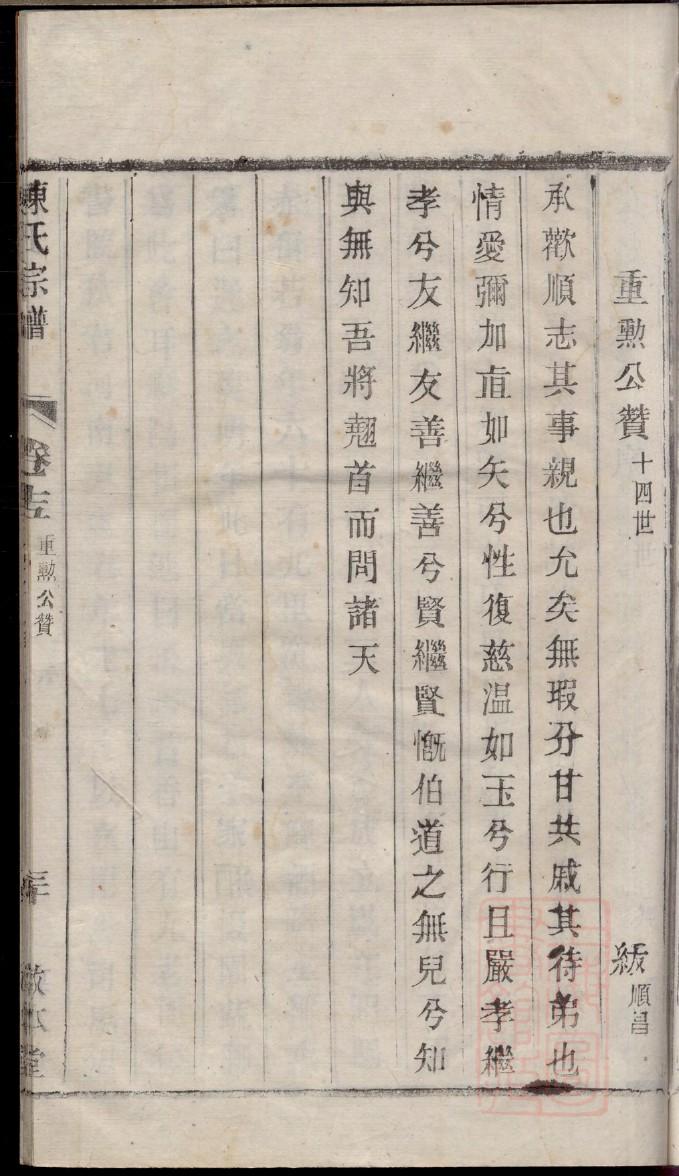 重勲公贊十四世
紱順昌
承歡順志其事親也允矣無瑕分甘共戚其待弟也
情愛彌加直如矢兮性復慈温如玉兮行且嚴孝繼
孝兮友繼友善繼善兮賢繼賢慨伯道之無兒兮知
與無知吾將翹首而問諸天
陳氏宗譜
重勲公贊
敬本堂